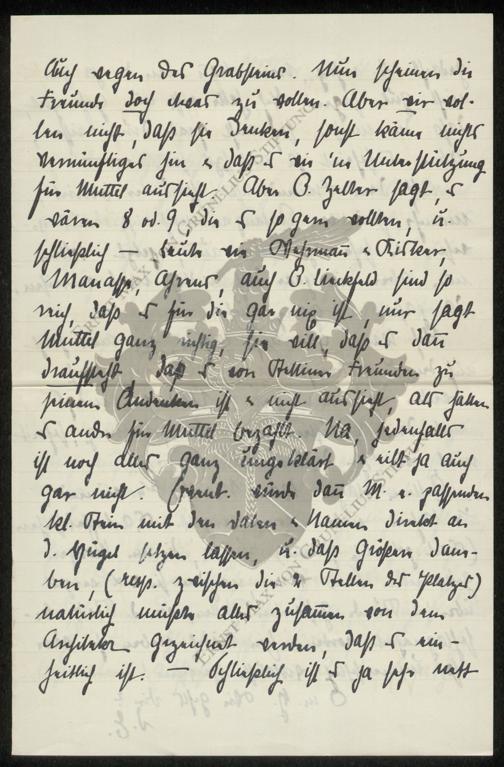 Auch wegen des Grabsteins. Nun scheinen die
Freunde doch etwas zu wollen. Aber wir wol-
len nicht, daß sie denken, sonst käme nichts
Vernünftiges hin u daß es wie 'ne Unterstützung
für Muttel aussieht. Aber O. Zelter sagt, es
wären 8 od. 9, die es so gern wollten, u.
schließlich — Leute wie Wehrmann u
Manasse, Ahrens, auch O. Lieckfeld sind so
reich, daß es für die gar nix ist, nur sagt
Muttel ganz richtig, sie will, daß es dann
draufsteht daß es von Stettiner Freunden zu
seinem Andenken ist u nicht aussieht, als hätten
es andre für Muttel bezahlt. Na, jedenfalls
ist noch alles ganz ungeklärt u eilt ja auch
gar nicht. Event. würde dann M. e. passenden
kl. Stein mit den Daten u Namen direkt an
d. Hügel setzen lassen, u. das Größere dane-
ben, (resp. zwischen die 2 Stellen des Platzes)
natürlich müßte alles zusammen von dem
Architekten gezeichnet werden, daß es ein-
heitlich ist. — Schließlich ist es ja sehr nett
ERNST MAX VON GRUNELIUS-STIFTUNG
ERNST MAX VON GRUNELIUS-STIFTUNG